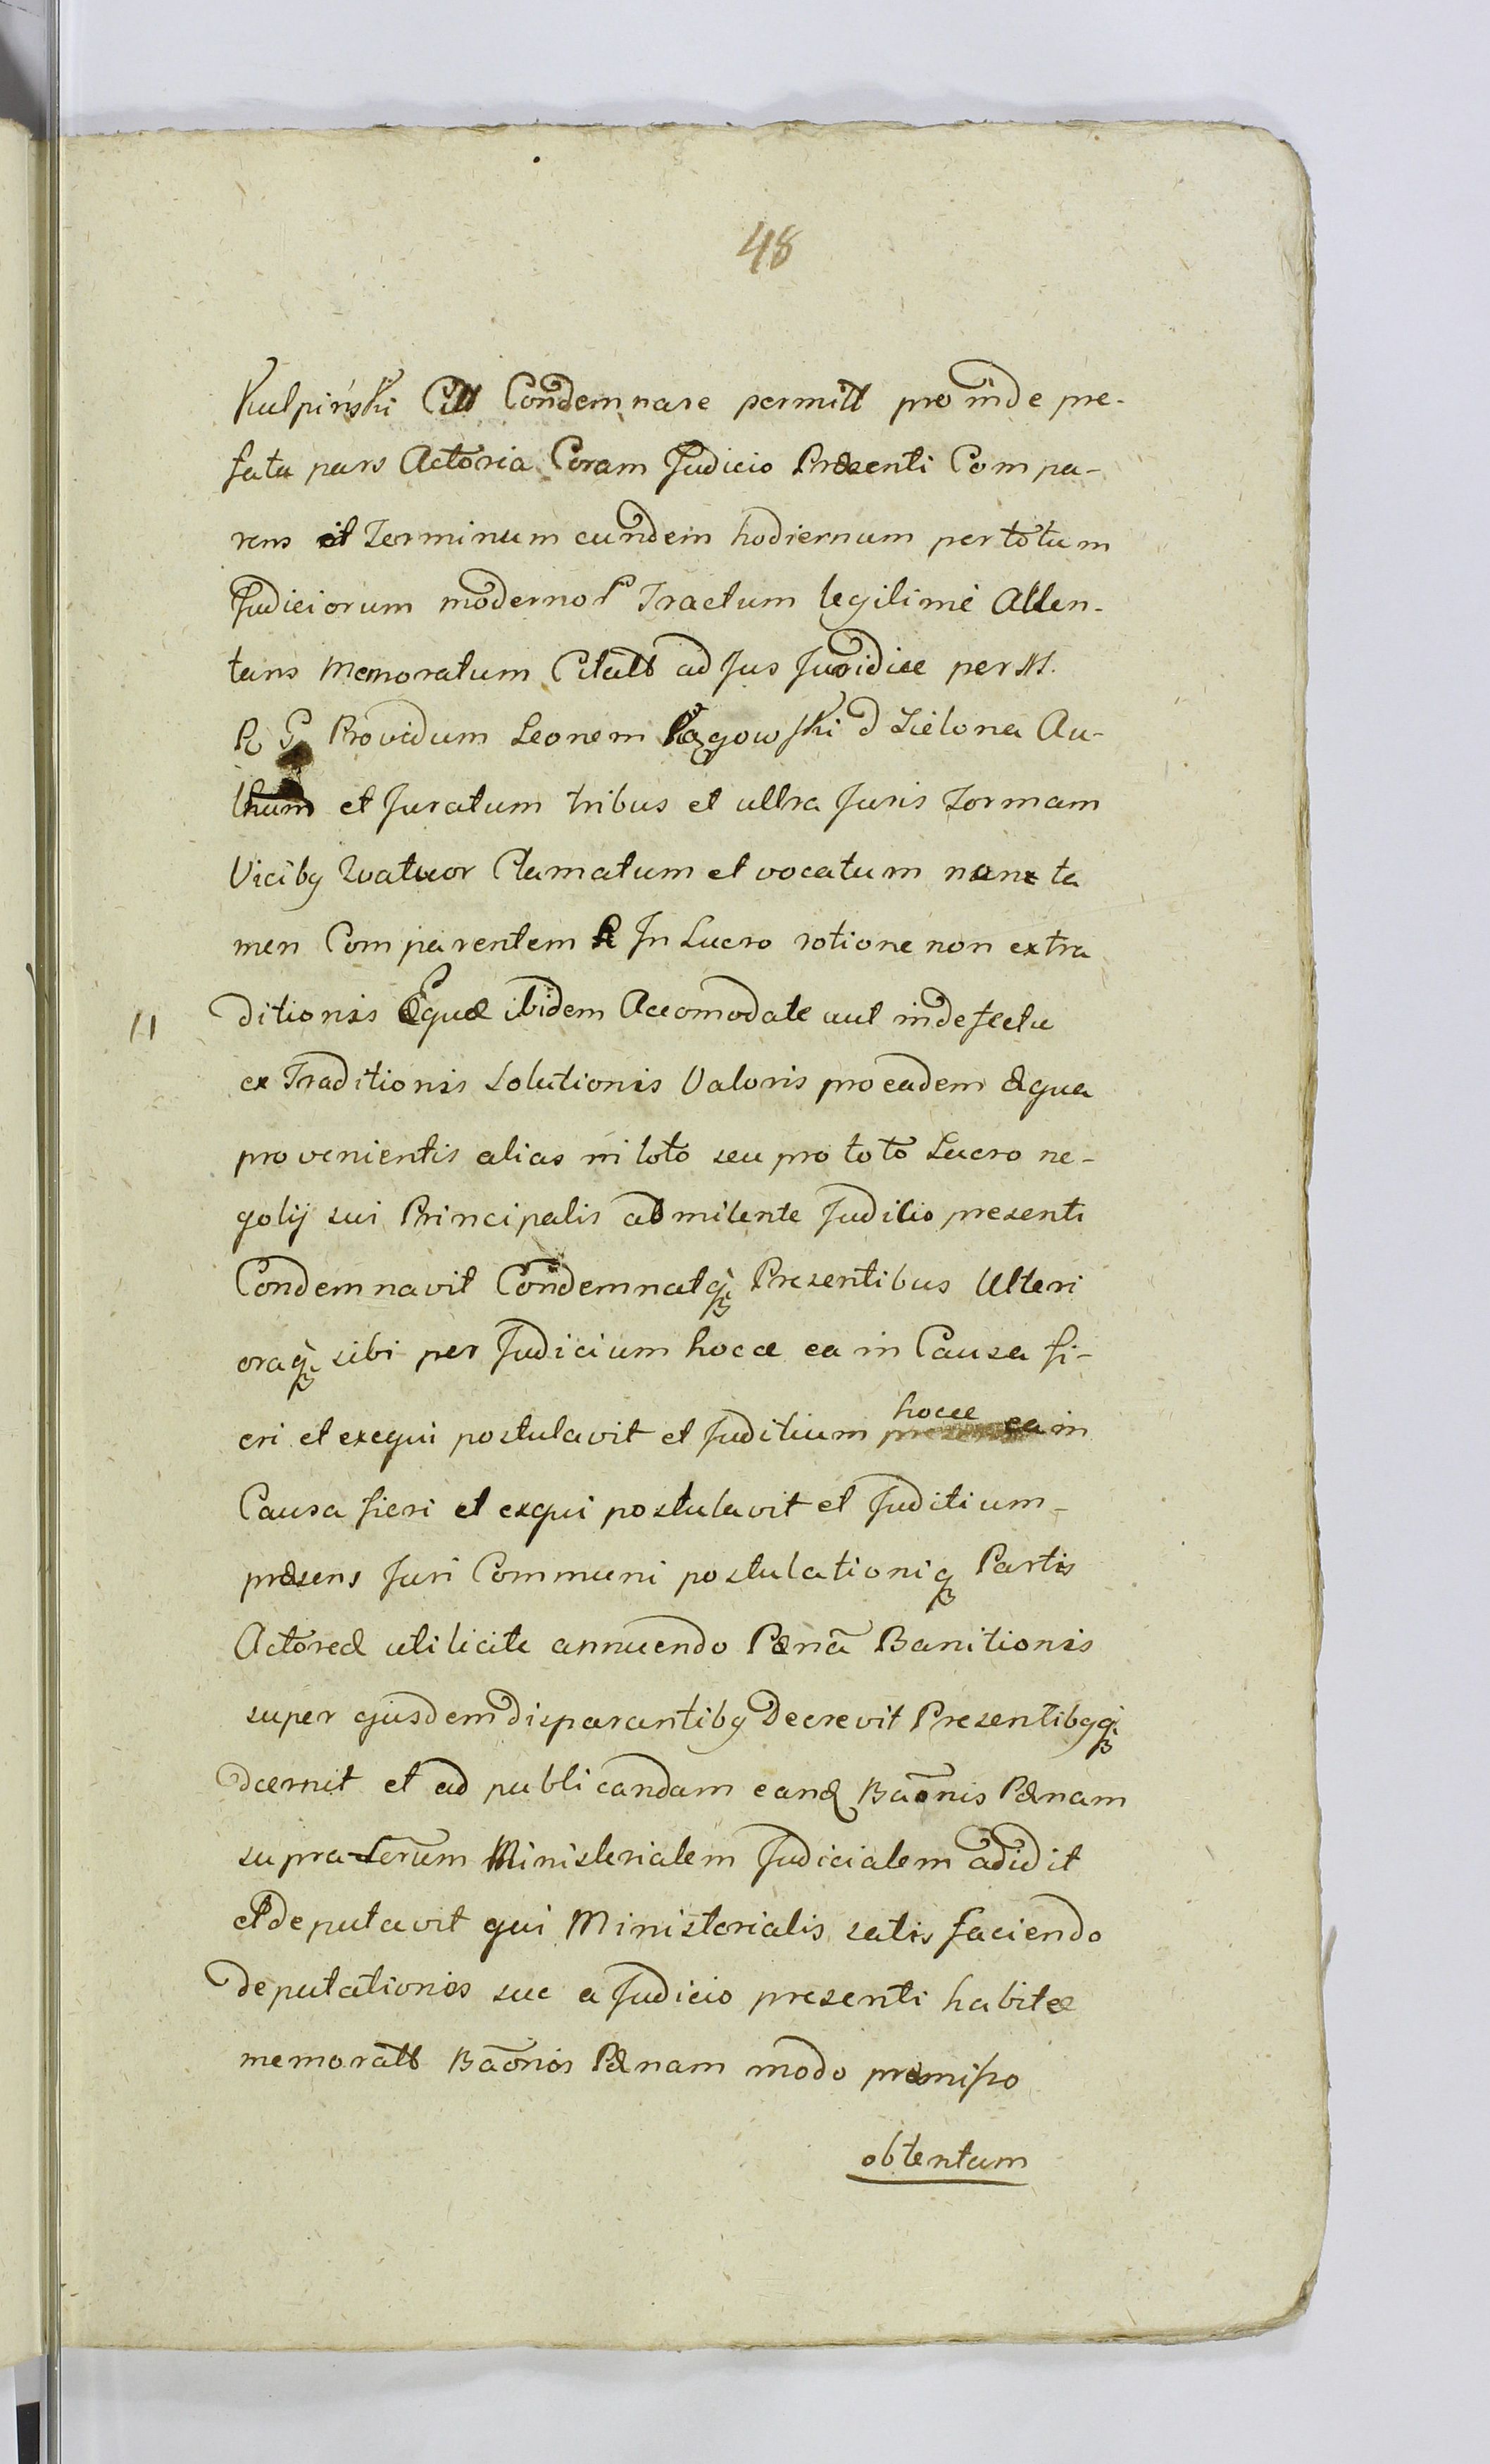 48
Kulpinski Citt Condemnare permitt pro inde pre-
fata pars Actoria Coram Judicio Præsenti Compa-
rens et Terminum eundem hodiernum per totum
Judiciorum modernor Tractum legitimè Atten-
tans Memoratum Citatt ad Jus Juridice per M.
R G Providum Leonem Łągowski d Zielona Au-
thum et Juratum tribus et ultra Juris Formam
Vicibq Quatuor Clamatum et vocatum nanx ta
men Comparentem In Lucro rotione non extra
11 ditionis Equæ ibidem Accomodate aut in defectu
ex Traditionis Solutionis Valoris pro eadem Equa
provenientis alias in toto seu pro toto Lucro ne-
gotij sui Principalis admitente Juditio presenti
Condemnavit Condemnatq Presentibus Ulteri
oraq sibi per Judicium hocce ea in Causa fi-
eri et exequi postulavit et Juditium hocce ea in
Causa fieri et exqui postulavit et Juditium
præsens Juri Communi postulationiq Partis
Actoreæ uti licite annuendo Pænã Banitionis
super ejusdem disparantibq Decrevit Presentibqq
dcernit et ad publicandam eand Baõnis Pænam
supra-Serum Ministerialem Judicialem adidit
et deputavit qui Ministerialis satis faciendo
deputationis sue a Judicio presenti habitæ
memoratt Baõnis Pænam modo præmisso
obtentam